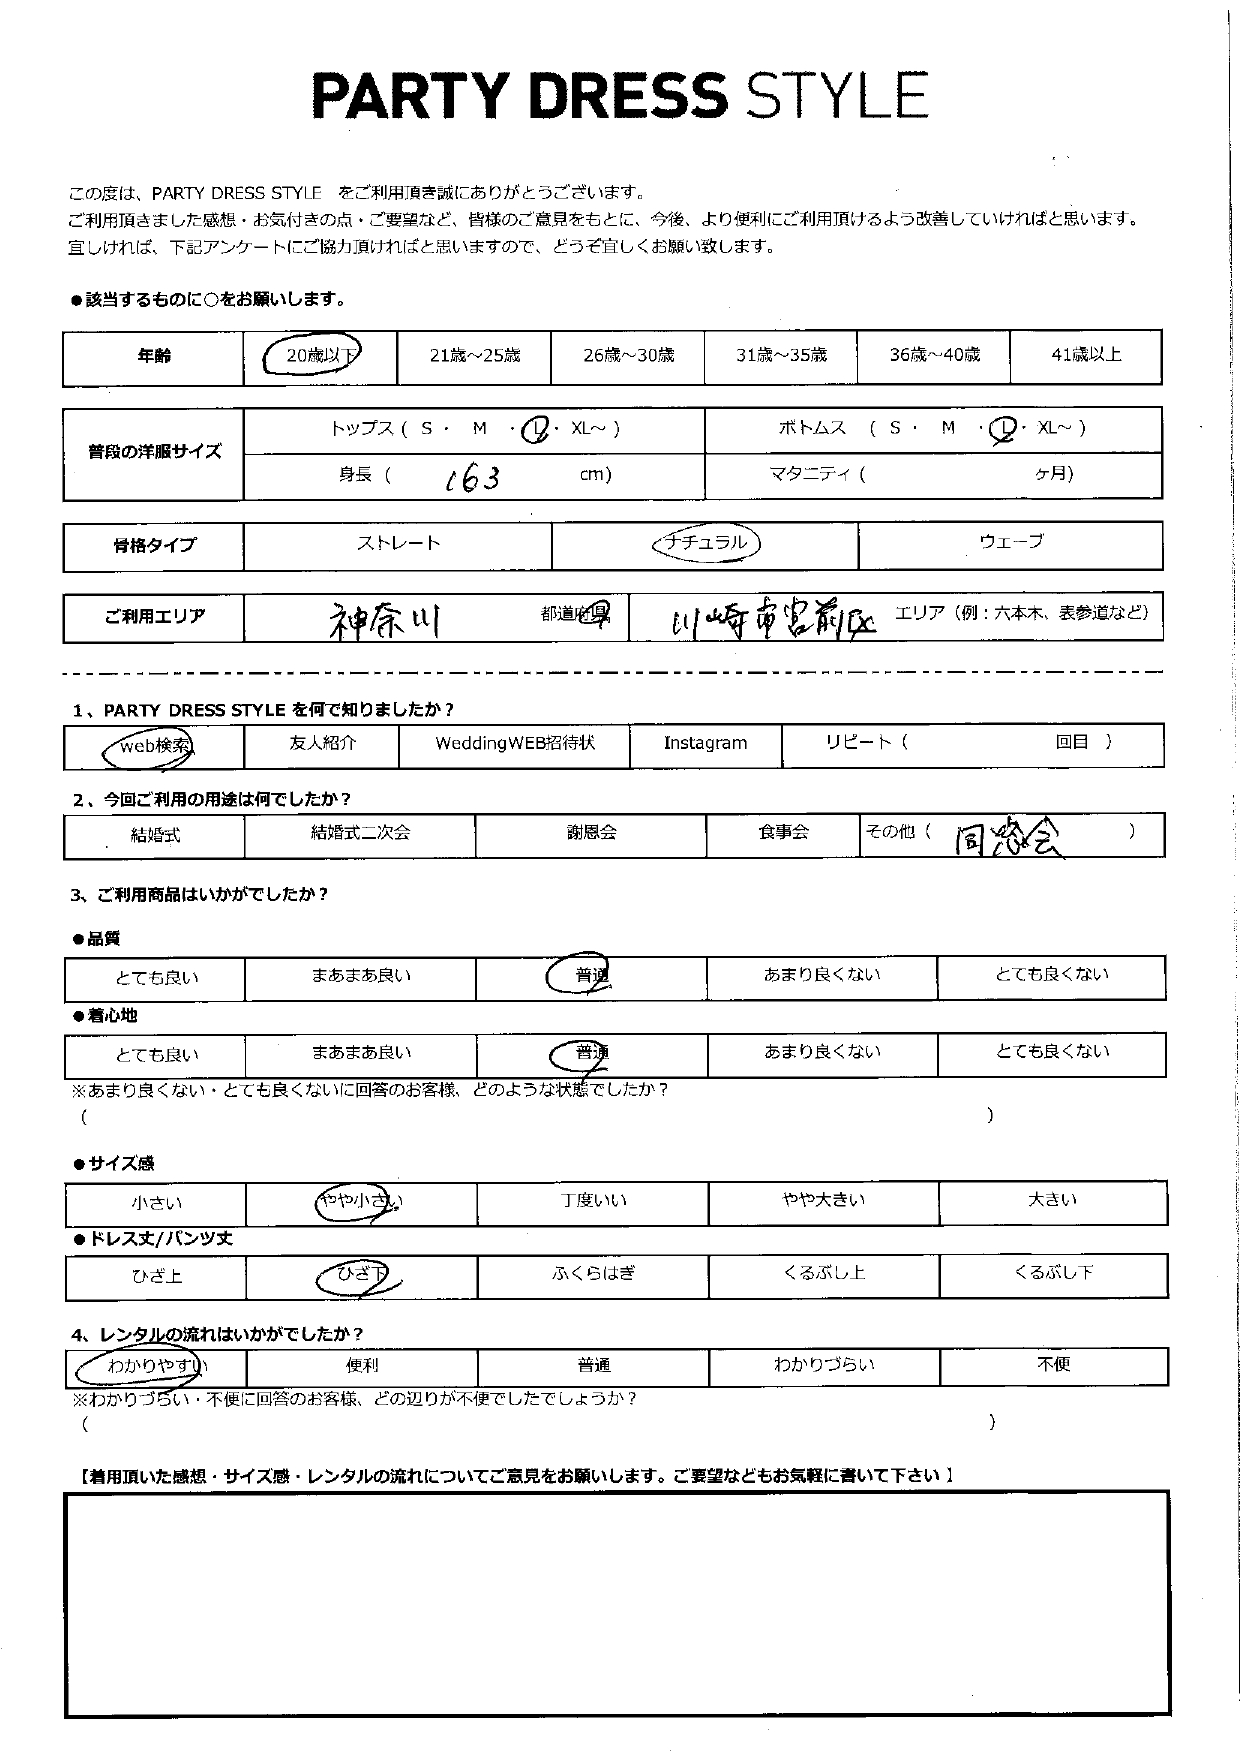 PARTY DRESS STYLE
この度は、PARTY DRESS STYLE をご利用頂き誠にありがとうございます。
ご利用頂きました感想・お気付きの点・ご要望など、皆様のご意見をもとに、今後、より便利にご利用頂けるよう改善していければと思います。
宜しければ、下記アンケートにご協力頂ければと思いますので、どうぞ宜しくお願い致します。
●該当するものに○をお願いします。
年齢 20歳以下 21歳～25歳 26歳～30歳 31歳～35歳 36歳～40歳 41歳以上
普段の洋服サイズ トップス ( S ・ M ・ L ・ XL～ ) ボトムス ( S ・ M ・ L ・ XL～ )
身長 ( 163 cm) マタニティ ( ヶ月)
骨格タイプ ストレート ナチュラル ウェーブ
ご利用エリア 神奈川 都道府県 川崎市宮前区 エリア（例：六本木、表参道など）
1、PARTY DRESS STYLE を何で知りましたか？
web検索 友人紹介 WeddingWEB招待状 Instagram リピート ( 回目 )
2、今回ご利用の用途は何でしたか？
結婚式 結婚式二次会 謝恩会 食事会 その他 ( 同窓会 )
3、ご利用商品はいかがでしたか？
●品質
とても良い まあまあ良い 普通 あまり良くない とても良くない
●着心地
とても良い まあまあ良い 普通 あまり良くない とても良くない
※あまり良くない・とても良くないに回答のお客様、どのような状態でしたか？
( )
●サイズ感
小さい やや小さい 丁度いい やや大きい 大きい
●ドレス丈/パンツ丈
ひざ上 ひざ下 ふくらはぎ くるぶし上 くるぶし下
4、レンタルの流れはいかがでしたか？
わかりやすい 便利 普通 わかりづらい 不便
※わかりづらい・不便に回答のお客様、どの辺りが不便でしたでしょうか？
( )
【着用頂いた感想・サイズ感・レンタルの流れについてご意見をお願いします。ご要望などもお気軽に書いて下さい】